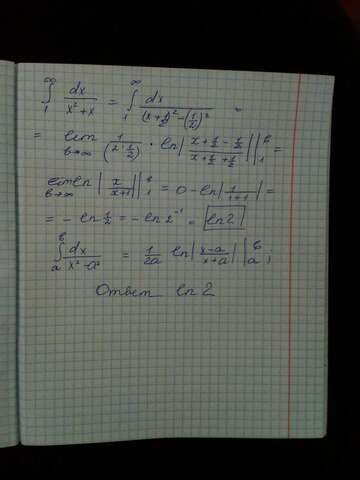 ∫₁^∞ dx/(x²+x) = ∫₁^∞ dx/((x+1/2)²-(1/2)²) =
= lim b→∞ 1/(2·1/2) · ln|(x+1/2-1/2)/(x+1/2+1/2)| |₁^b =
lim b→∞ ln|x/(x+1)| |₁^b = 0-ln|1/(1+1)| =
= -ln 1/2 = -ln 2⁻¹ = ln 2
∫ₐ^b dx/(x²-a²) = 1/(2a) ln|(x-a)/(x+a)| |ₐ^b ;
Ответ ln 2